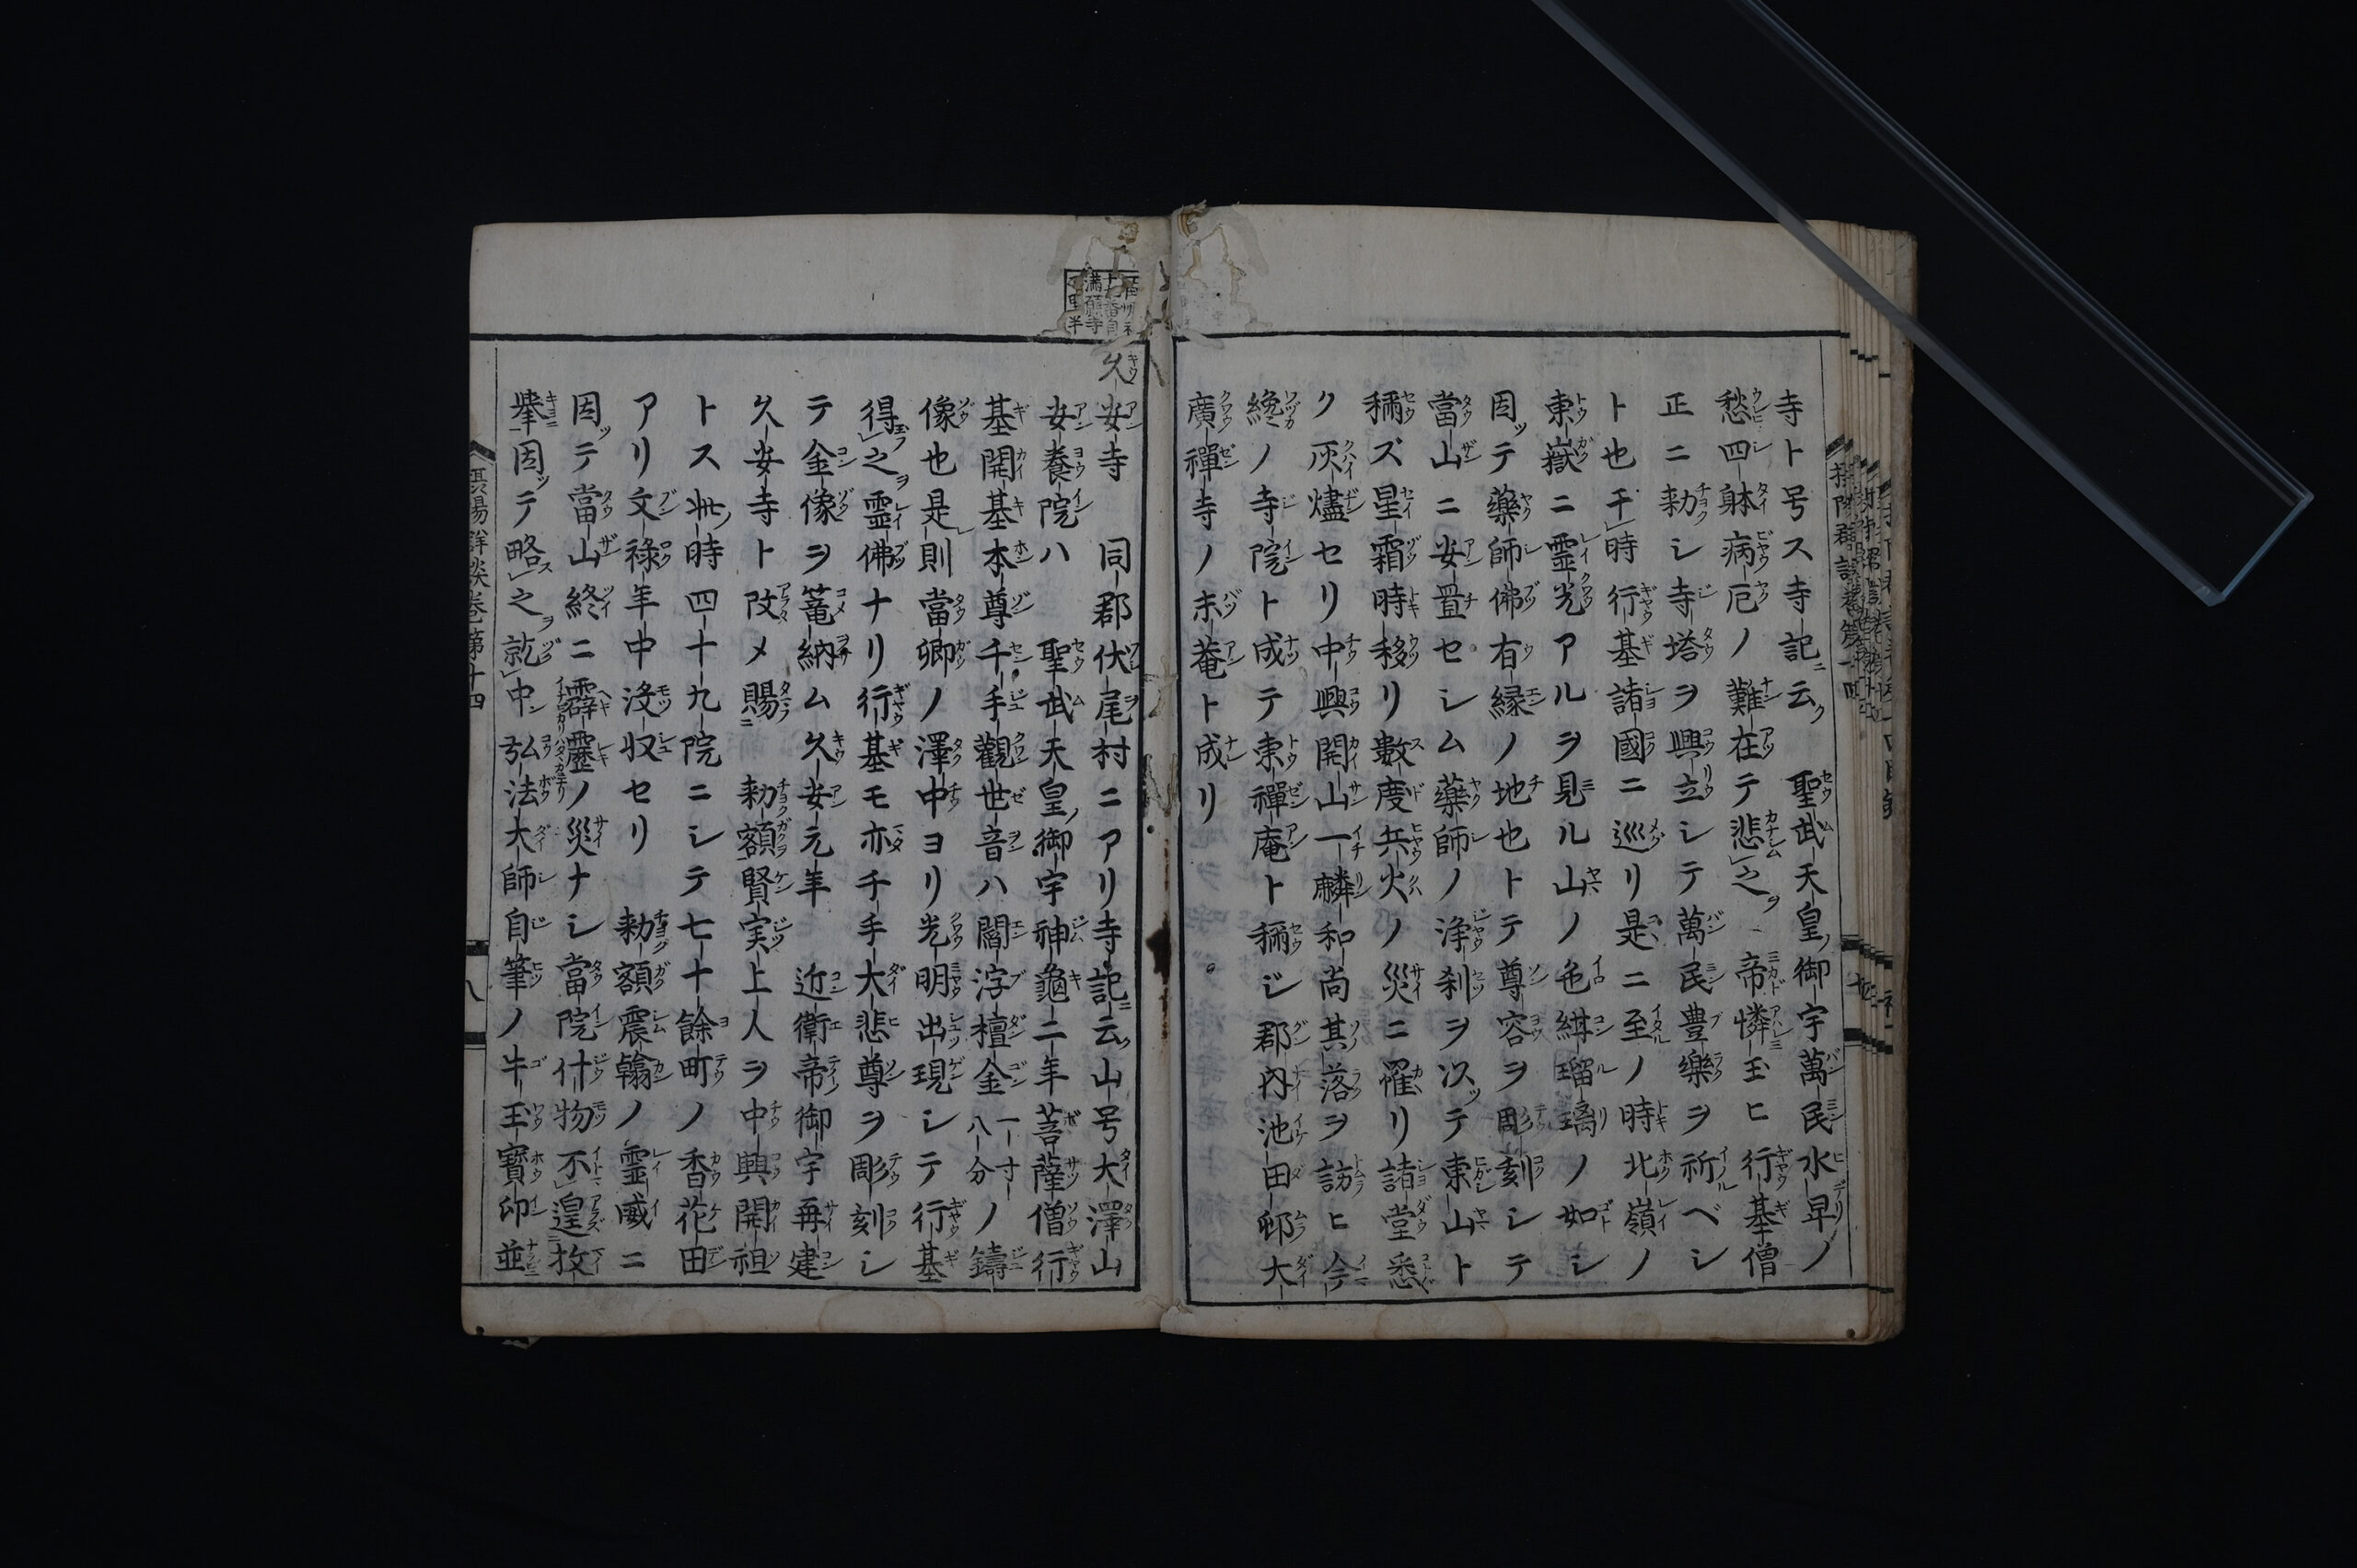 寺ト号ス寺記云聖武天皇御宇萬民水旱ノ
愁四躰病厄ノ難在テ悲之帝憐玉ヒ行基僧
正ニ勅シ寺塔ヲ興立シテ萬民豊樂ヲ祈ベシ
ト也干時行基諸國ニ巡リ是ニ至ノ時北嶺ノ
東嶽ニ霊光アルヲ見ル山ノ色紺瑠璃ノ如シ
因テ藥師佛有縁ノ地也トテ尊容ヲ彫刻シテ
當山ニ安置セシム藥師ノ浄刹ヲ以テ東山ト
稱ズ星霜時移リ數度兵火ノ災ニ罹リ諸堂悉
ク灰燼セリ中興開山一麟和尚其落ヲ訪ヒ今
纔ノ寺院ト成テ東禪庵ト稱シ郡内池田邨大
廣禪寺ノ末菴ト成リ
久安寺 同郡伏尾村ニアリ寺記云山号大澤山
安養院ハ聖武天皇御宇神龜二年菩薩僧行
基開基本尊千手觀世音ハ閻浮檀金一寸八分ノ鑄
像也是則當郷ノ澤中ヨリ光明出現シテ行基
得之霊佛ナリ行基モ亦千手大悲尊ヲ彫刻シ
テ金像ヲ篭納ム久安元年近衛帝御宇再建
久安寺ト改メ賜勅額賢実上人ヲ中興開祖
トス此時四十九院ニシテ七十餘町ノ香花田
アリ文祿年中没収セリ勅額震翰ノ霊威ニ
因テ當山終ニ霹靂ノ災ナシ當院什物不遑枚
擧因テ略之就中弘法大師自筆ノ牛玉寳印並
摂陽群談巻第十四
八